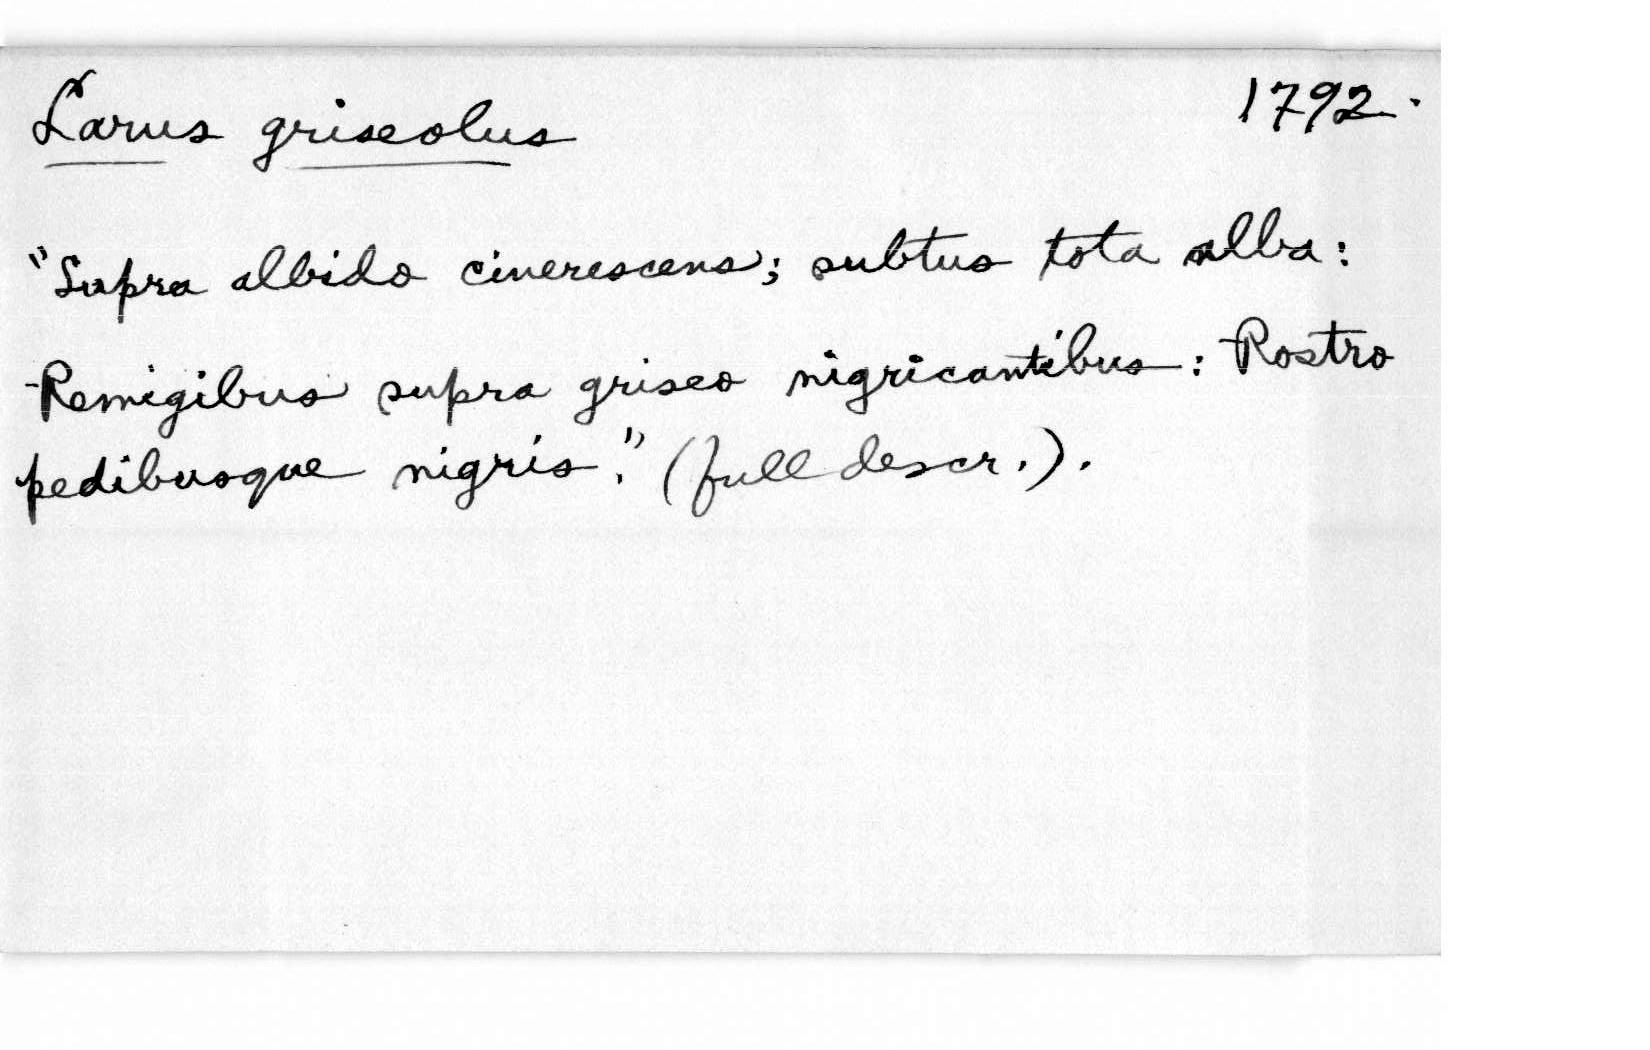 Larus griseolus 1792.
"Supra albido cinerescens; subtus tota alba:
Remigibus supra griseo nigricantibus: Rostro
pedibusque nigris." (full descr.).